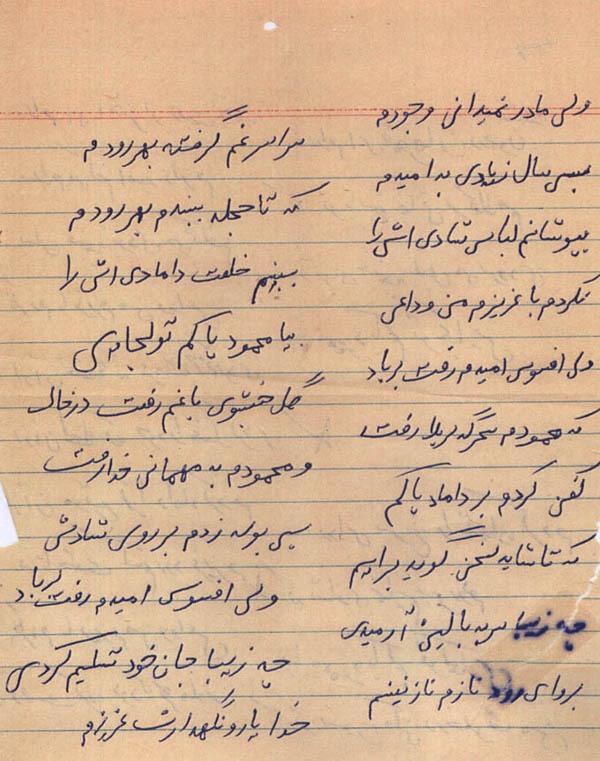 ولی مادر نمیدانی وجودم
سراسر غم گرفته بهر رودم
بسی سال زیادی به امیدم
که تا حجله ببندم بهر رودم
بپوشانم لباس شادی اش را
ببینم خلعت دامادی اش را
نکردم با عزیزم من وداعی
بیا محمود پاکم تو کجایی
ولی افسوس امیدم رفت بر باد
گل خشبوی باغم رفت در خاک
که محمودم سحرگه کربلا رفت
و محمودم به مهمانی خدا رفت
کفن کردم بر داماد پاکم
بسی بوسه زدم بر روی شادش
که تا شاید سخن گوید برایم
ولی افسوس امیدم رفت بر باد
چه زیبا سر به بالین آرمیدی
چه زیبا جان خود تسلیم کردی
برو ای رود نازم نازنینم
خدا یار و نگهدارت عزیزم